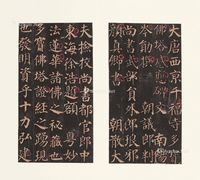 大唐西京千福寺多寶
佛塔感應碑文 南陽
岑勛撰 朝議郎判
尚書武部員外郎琅邪
顏真卿書 朝散大
夫檢校尚書都官郎中
東海徐浩題額 粵妙
法蓮華諸佛之秘藏也
多寶佛塔證經之踴現
也發明資乎十力弘建